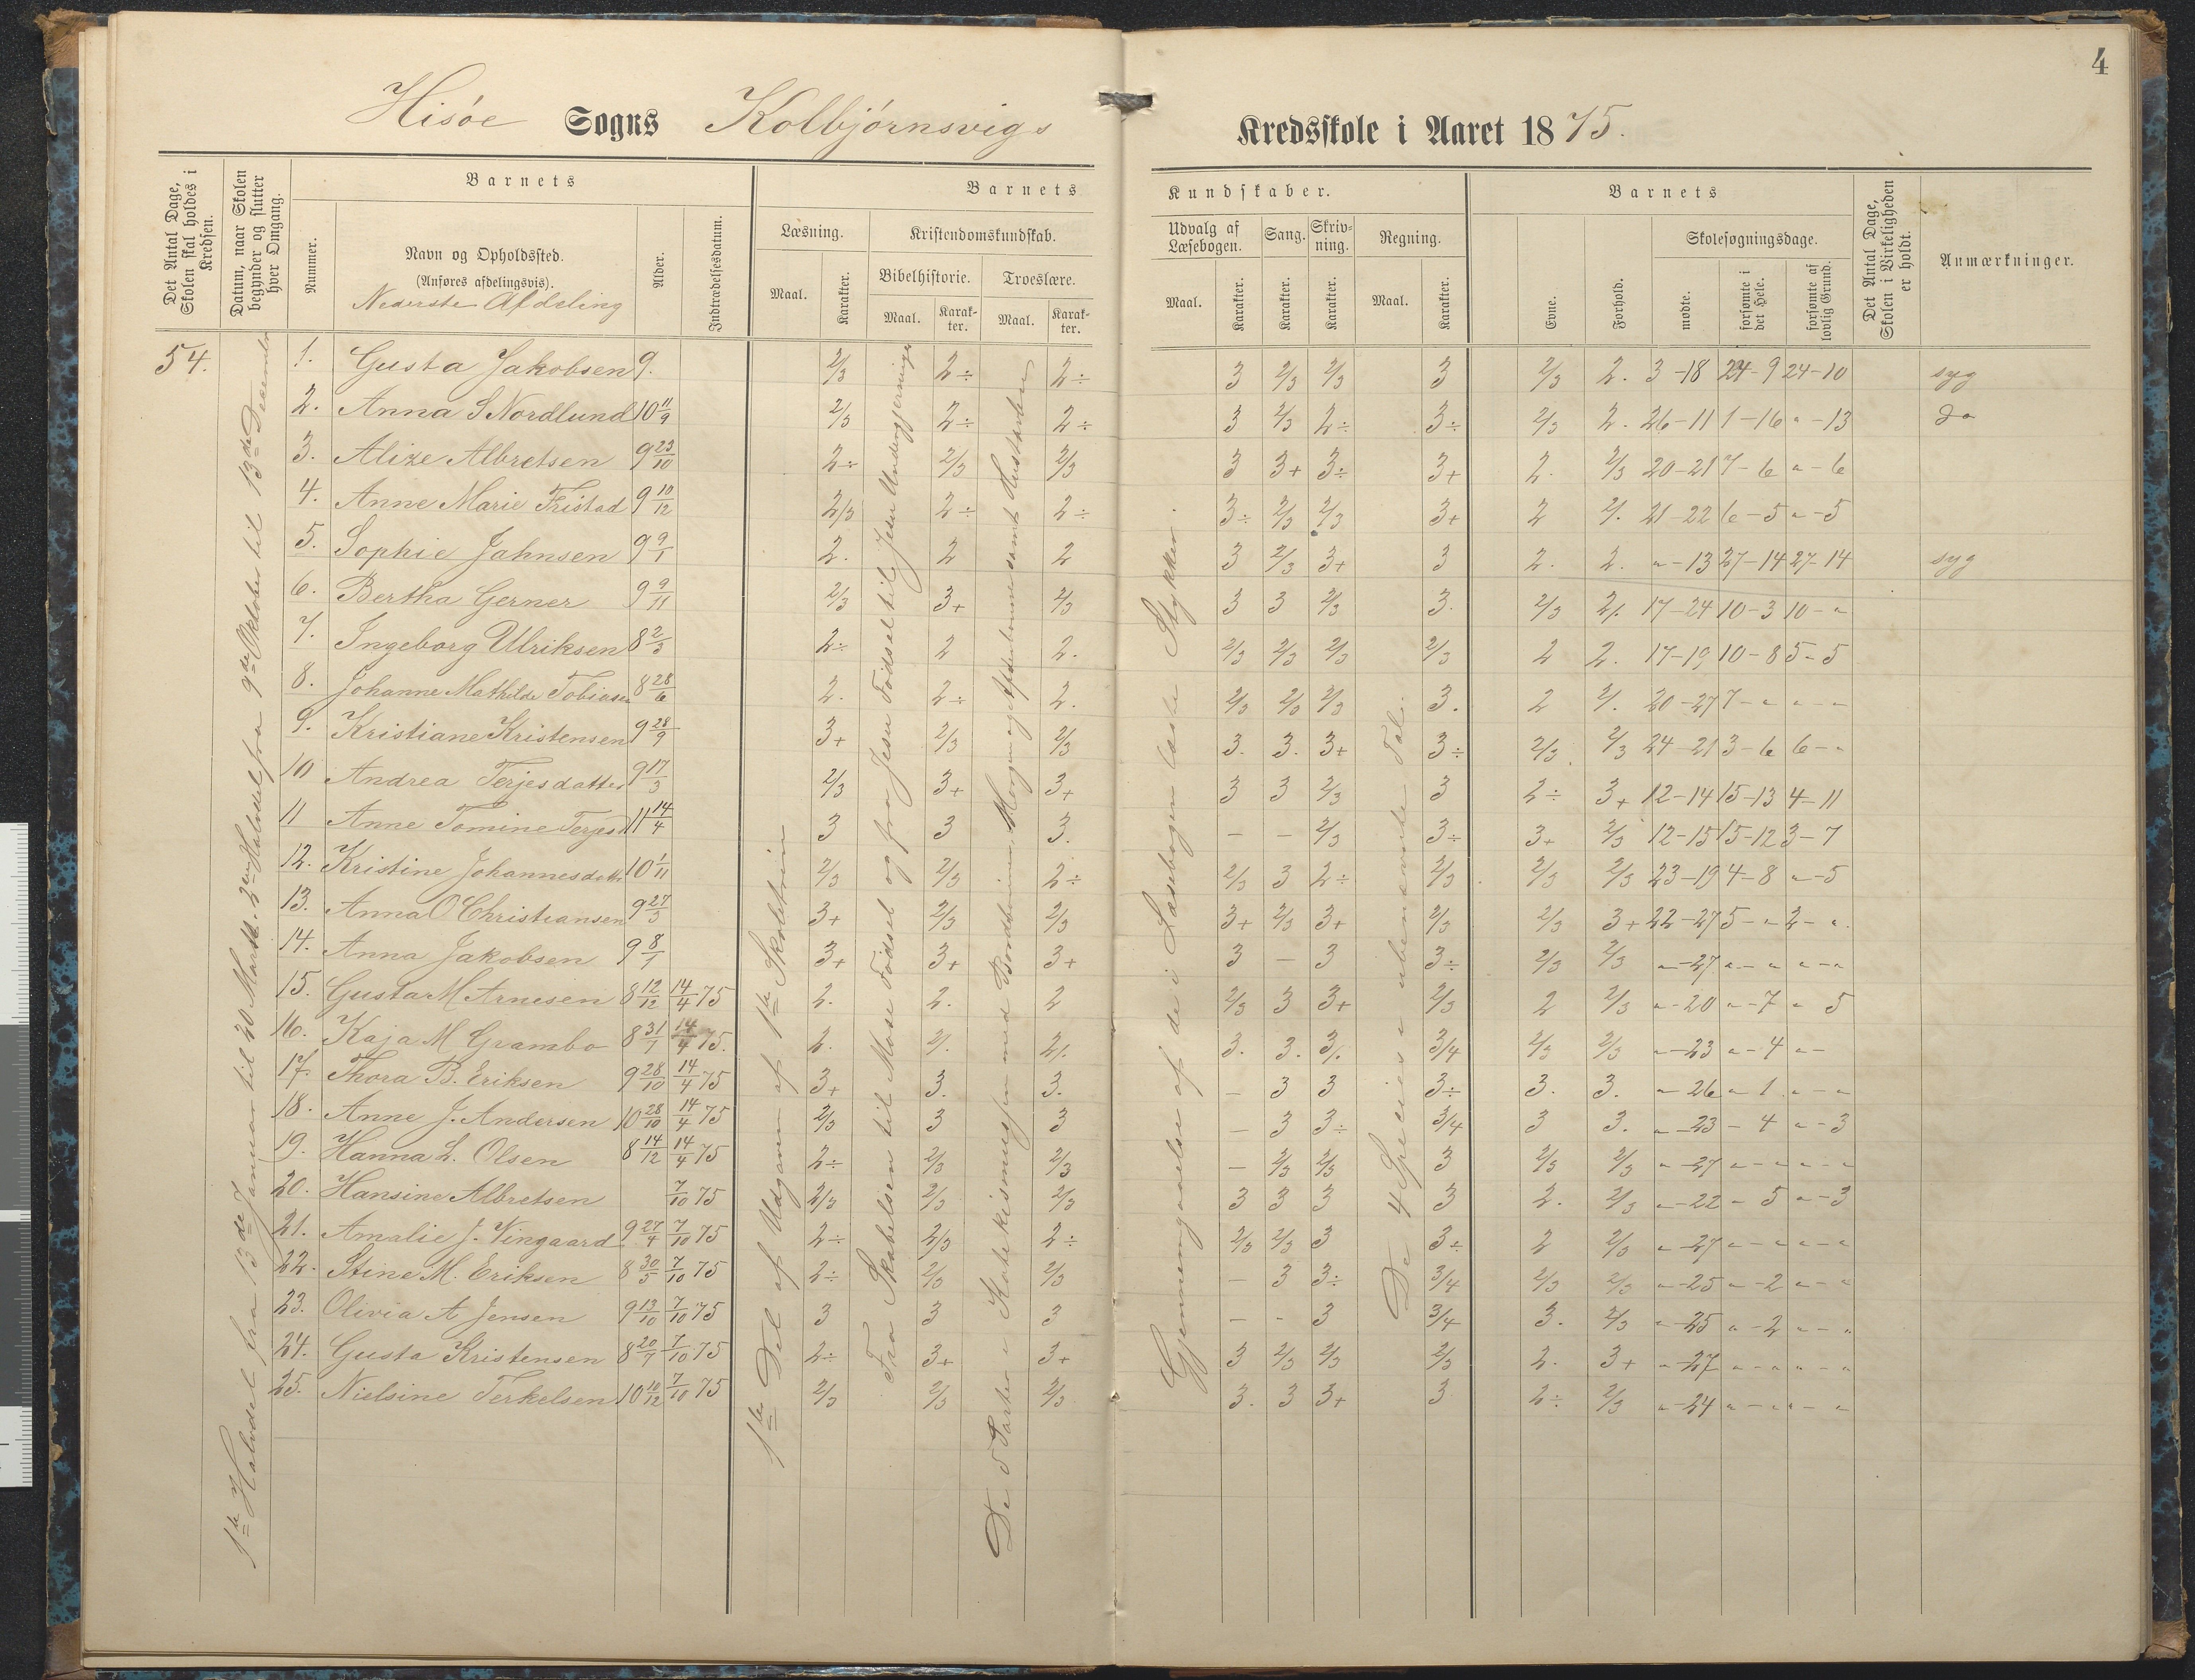 4
Hisøe Sogns Kolbjørnsvigs Kredsskole i Aaret 1875.
Det Antal Dage, Skolen skal holdes i Kredsen.
Datum, naar Skolen begynder og slutter hver Omgang.
Barnets
Nummer.
Navn og Opholdssted.
(Anføres afdelingsvis).
Nederste Afdeling
Alder.
Indtrædelsesdatum.
Barnets Kundskaber.
Læsning.
Maal.
Karakter.
Kristendomskundskab.
Bibelhistorie.
Maal.
Karakter.
Troeslære.
Maal.
Karakter.
Udvalg af Læsebogen.
Maal.
Karakter.
Sang.
Karakter.
Skrivning.
Karakter.
Regning.
Maal.
Karakter.
Barnets
Evne.
Forhold.
Skolesøgningsdage.
mødte.
forsømte i det Hele.
forsømte af lovlig Grund.
Det Antal Dage, Skolen i Virkeligheden er holdt.
Anmærkninger.
54.
1ste Halvdel fra 13de Januar til 20 Marts. 2en Halvdel fra 9de Oktober til 13de December
1ste Del af Udgaven af 1ste Skoletrin
Fra Skabelsen til Mose Fødsel og fra Jesu Fødsel til Jesu Undergjerninger
De 5 Parter i Katekismusen med Bordbønner, Morgen og Aftenbønner samt Hustavlen
Gjennemgaaelse af de i Læsebogen læste Stykker.
De 4 Species i ubenævnte Tal.
1. Gusta Jakobsen 9. 2/3 2÷ 2÷ 3 2/3 2/3 3 2/3 2. 3-18 24-9 24-10 syg
2. Anna S Nordlund 10 11/9 2/3 2÷ 2÷ 3 2/3 2÷ 3÷ 2/3 2. 26-11 1-16 "-13 do
3. Alize Albretsen 9 23/10 2÷ 2/3 2/3 3 3+ 3÷ 3+ 2. 2/3 20-21 7-6 "-6
4. Anne Marie Fristad 9 10/12 2/3 2÷ 2÷ 3÷ 2/3 2/3 3+ 2 2/. 21-22 6-5 "-5
5. Sophie Jahnsen 9 9/1 2. 2 2 3 2/3 3+ 3 2. 2. "-13 27-14 27-14 syg
6. Bertha Gerner 9 9/11 2/3 3+ 2/3 3 3 2/3 3. 2/3 2/. 17-24 10-3 10-"
7. Ingeborg Ulriksen 8 2/3 2÷ 2 2. 2/3 2/3 2/3 2/3 2 2. 17-19 10-8 5-5
8. Johanne Mathilde Tobiasen 8 28/6 2. 2÷ 2. 2/3 2/3 2/3 3. 2 2/. 20-27 7-" "-"
9. Kristiane Kristensen 9 28/9 3+ 2/3 2/3 3. 3. 3+ 3÷ 2/3 2/3 24-21 3-6 6-"
10 Andrea Terjesdatter 9 17/3 2/3 3+ 3+ 3 3 2/3 3 2÷ 3+ 12-14 15-13 4-11
11 Anne Tomine Terjesd 11 14/4 3 3 3. - - 2/3 3÷ 3+ 2/3 12-15 15-12 3-7
12. Kristine Johannesdattr 10 1/11 2/3 2/3 2÷ 2/3 3 2÷ 2/3 2/3 2/3 23-19 4-8 "-5
13. Anna O Christiansen 9 27/3 3+ 2/3 2/3 3+ 2/3 3+ 2/3 2/3 3+ 22-27 5-" 2-"
14. Anna Jakobsen 9 8/1 3+ 3+ 3+ 3 - 3 3÷ 2/3 2/3 "-27 "-" "-"
15. Gusta M Arnesen 8 12/12 14/4 75 2. 2. 2 2/3 3 3+ 2/3 2 2/3 "-20 "-7 " 5
16. Kaja M Grambo 8 31/1 14/4 75. 2. 2/. 2/. 3. 3. 3/. 3/4 2/3 2/3 "-23 "-4 "-
17. Thora B. Eriksen 9 28/10 14/4 75 3+ 3. 3. - 3 3 3÷ 3. 3. "-26 "-1 "-"
18. Anne J. Andersen 10 28/10 14/4 75 2/3 3 3 - 3 3÷ 3/4 3 3. "-23 -4 "-3
19. Hanna L. Olsen 8 14/12 14/4 75 2÷ 2/3 2/3 - 2/3 2/3 3 2/3 2/3 "-27 "-" "-"
20. Hansine Albretsen 7/10 75 2/3 2/3 2/3 3 3 3 3 2. 2/3 "-22 "-5 "-3
21. Amalie J. Vingaard 9 27/4 7/10 75 2÷ 2/3 2÷ 2/3 2/3 3 3÷ 2 2/3 "-27 "-" "-"
22. Stine M. Eriksen 8 30/5 7/10 75 2÷ 2/3 2/3 - 3 3÷ 3/4 2/3 2/3 "-25 "-2 "-"
23. Olivia A Jensen 9 13/10 7/10 75 3 3 3 - - 3 3/4 3. 2/3 "-25 "-2 "-"
24. Gusta Kristensen 8 20/7 7/10 75 2÷ 3+ 3+ 3 2/3 2/3 2/3 2. 3+ "-27 "-" "-"
25. Nielsine Terkelsen 10 10/12 7/10 75 2/3 2/3 2/3 3. 3 3+ 3 2÷ 2/3 "-24 "-" "-"